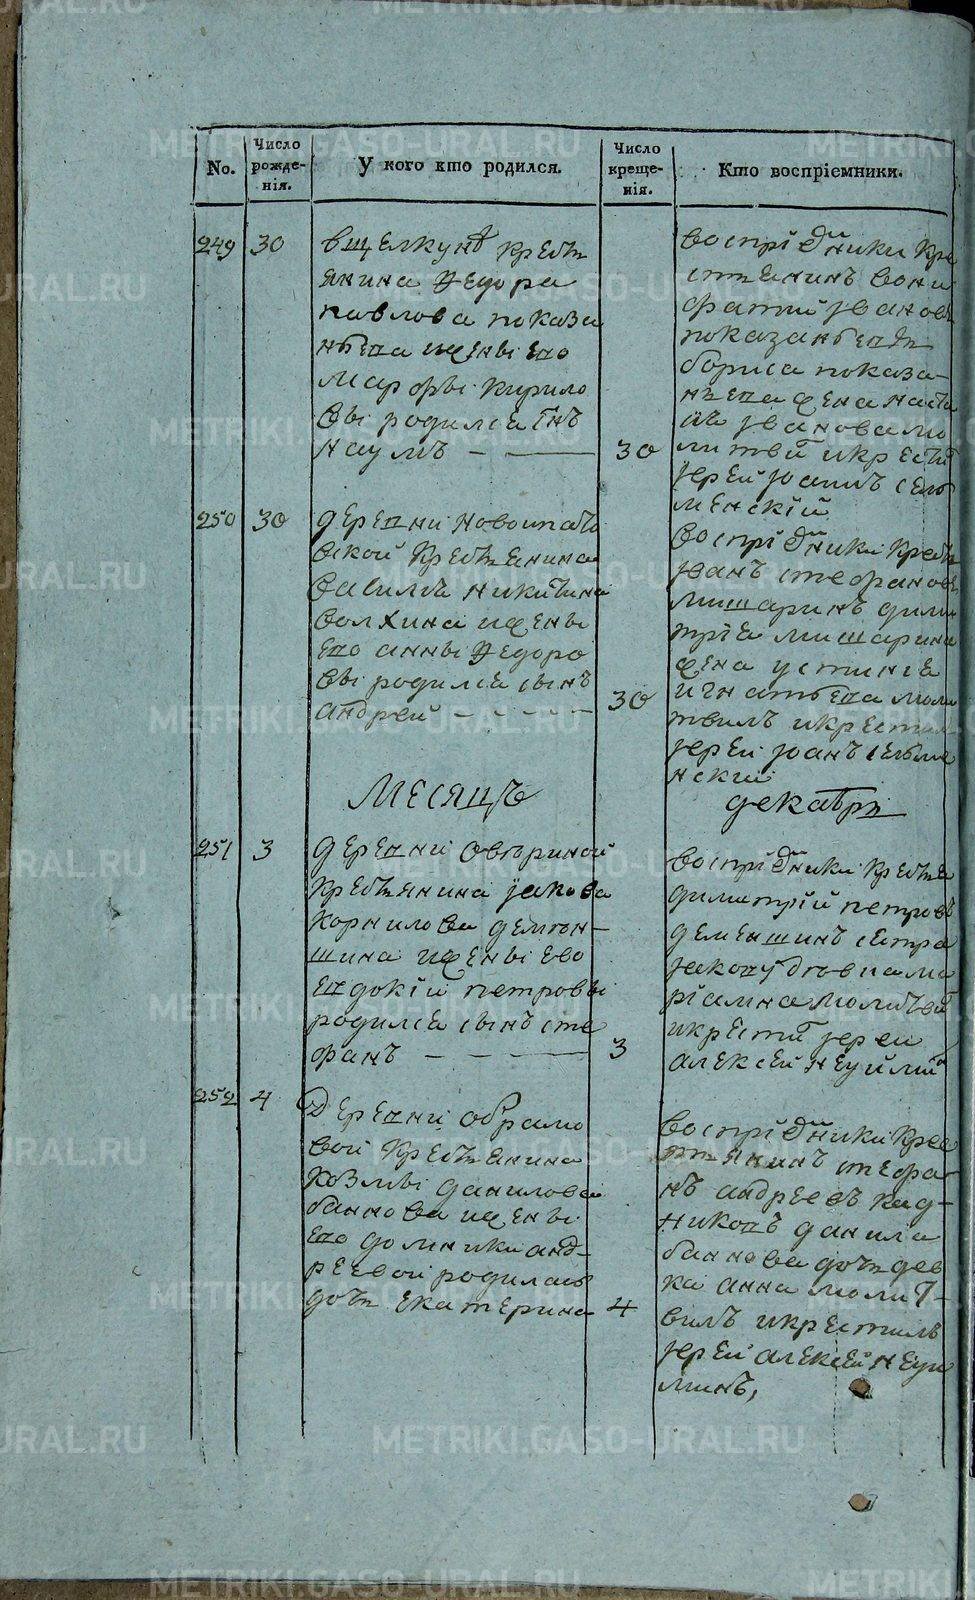 No.
Число рожде-нія.
У кого кто родился.
Число креще-нія.
Кто воспріемники.
249
30
вщелкунѣ кресть
янина Ѳедора
павлова показа
нъева ижены его
марфы кирило
вы родился снъ
наумъ
30
воспріемники кре
стьянинъ вони
фатій ивановъ
бориса показа-
нъева жена наста
сія иванова мо
литвил икрестил
іерей іоаннъ селъ
менскій
250
30
деревни новоипать
вской крестьянина
василья никитина
волхина ижены
его анны Ѳедоро
вы родился сынъ
андрей
30
воспріемники кресть
іванъ стефановъ
мишаринъ дими
трія мишарина
жена устинія
игнатьева моли
твилъ икрестил
іерей іоанъ сельме
нский
месяцъ
декабрь
251
3
деревни овериной
крестьянина іакова
корнилова демен-
шина ижены ево
евдокіи петровы
родился сынъ сте
фанъ
3
воспріемники крестья
димитрій петровъ
деменшинъ сестра
іакову девица ма
ріамна молитвил
икрестил іереи
алексей неуймин
252
4
деревни абрамо
вой крестьянина
козмы данилова
баннова ижены
его домники анд-
реевой родилась
дочь екатерина
4
воспріемники крес
тьянинъ стефа-
нъ андреевъ кад-
никовъ данила
баннова дочь дев
ка анна молит-
вилъ икрестилъ
іерей алексей неуи
минъ,
METRIKI.GASO-URAL.RU